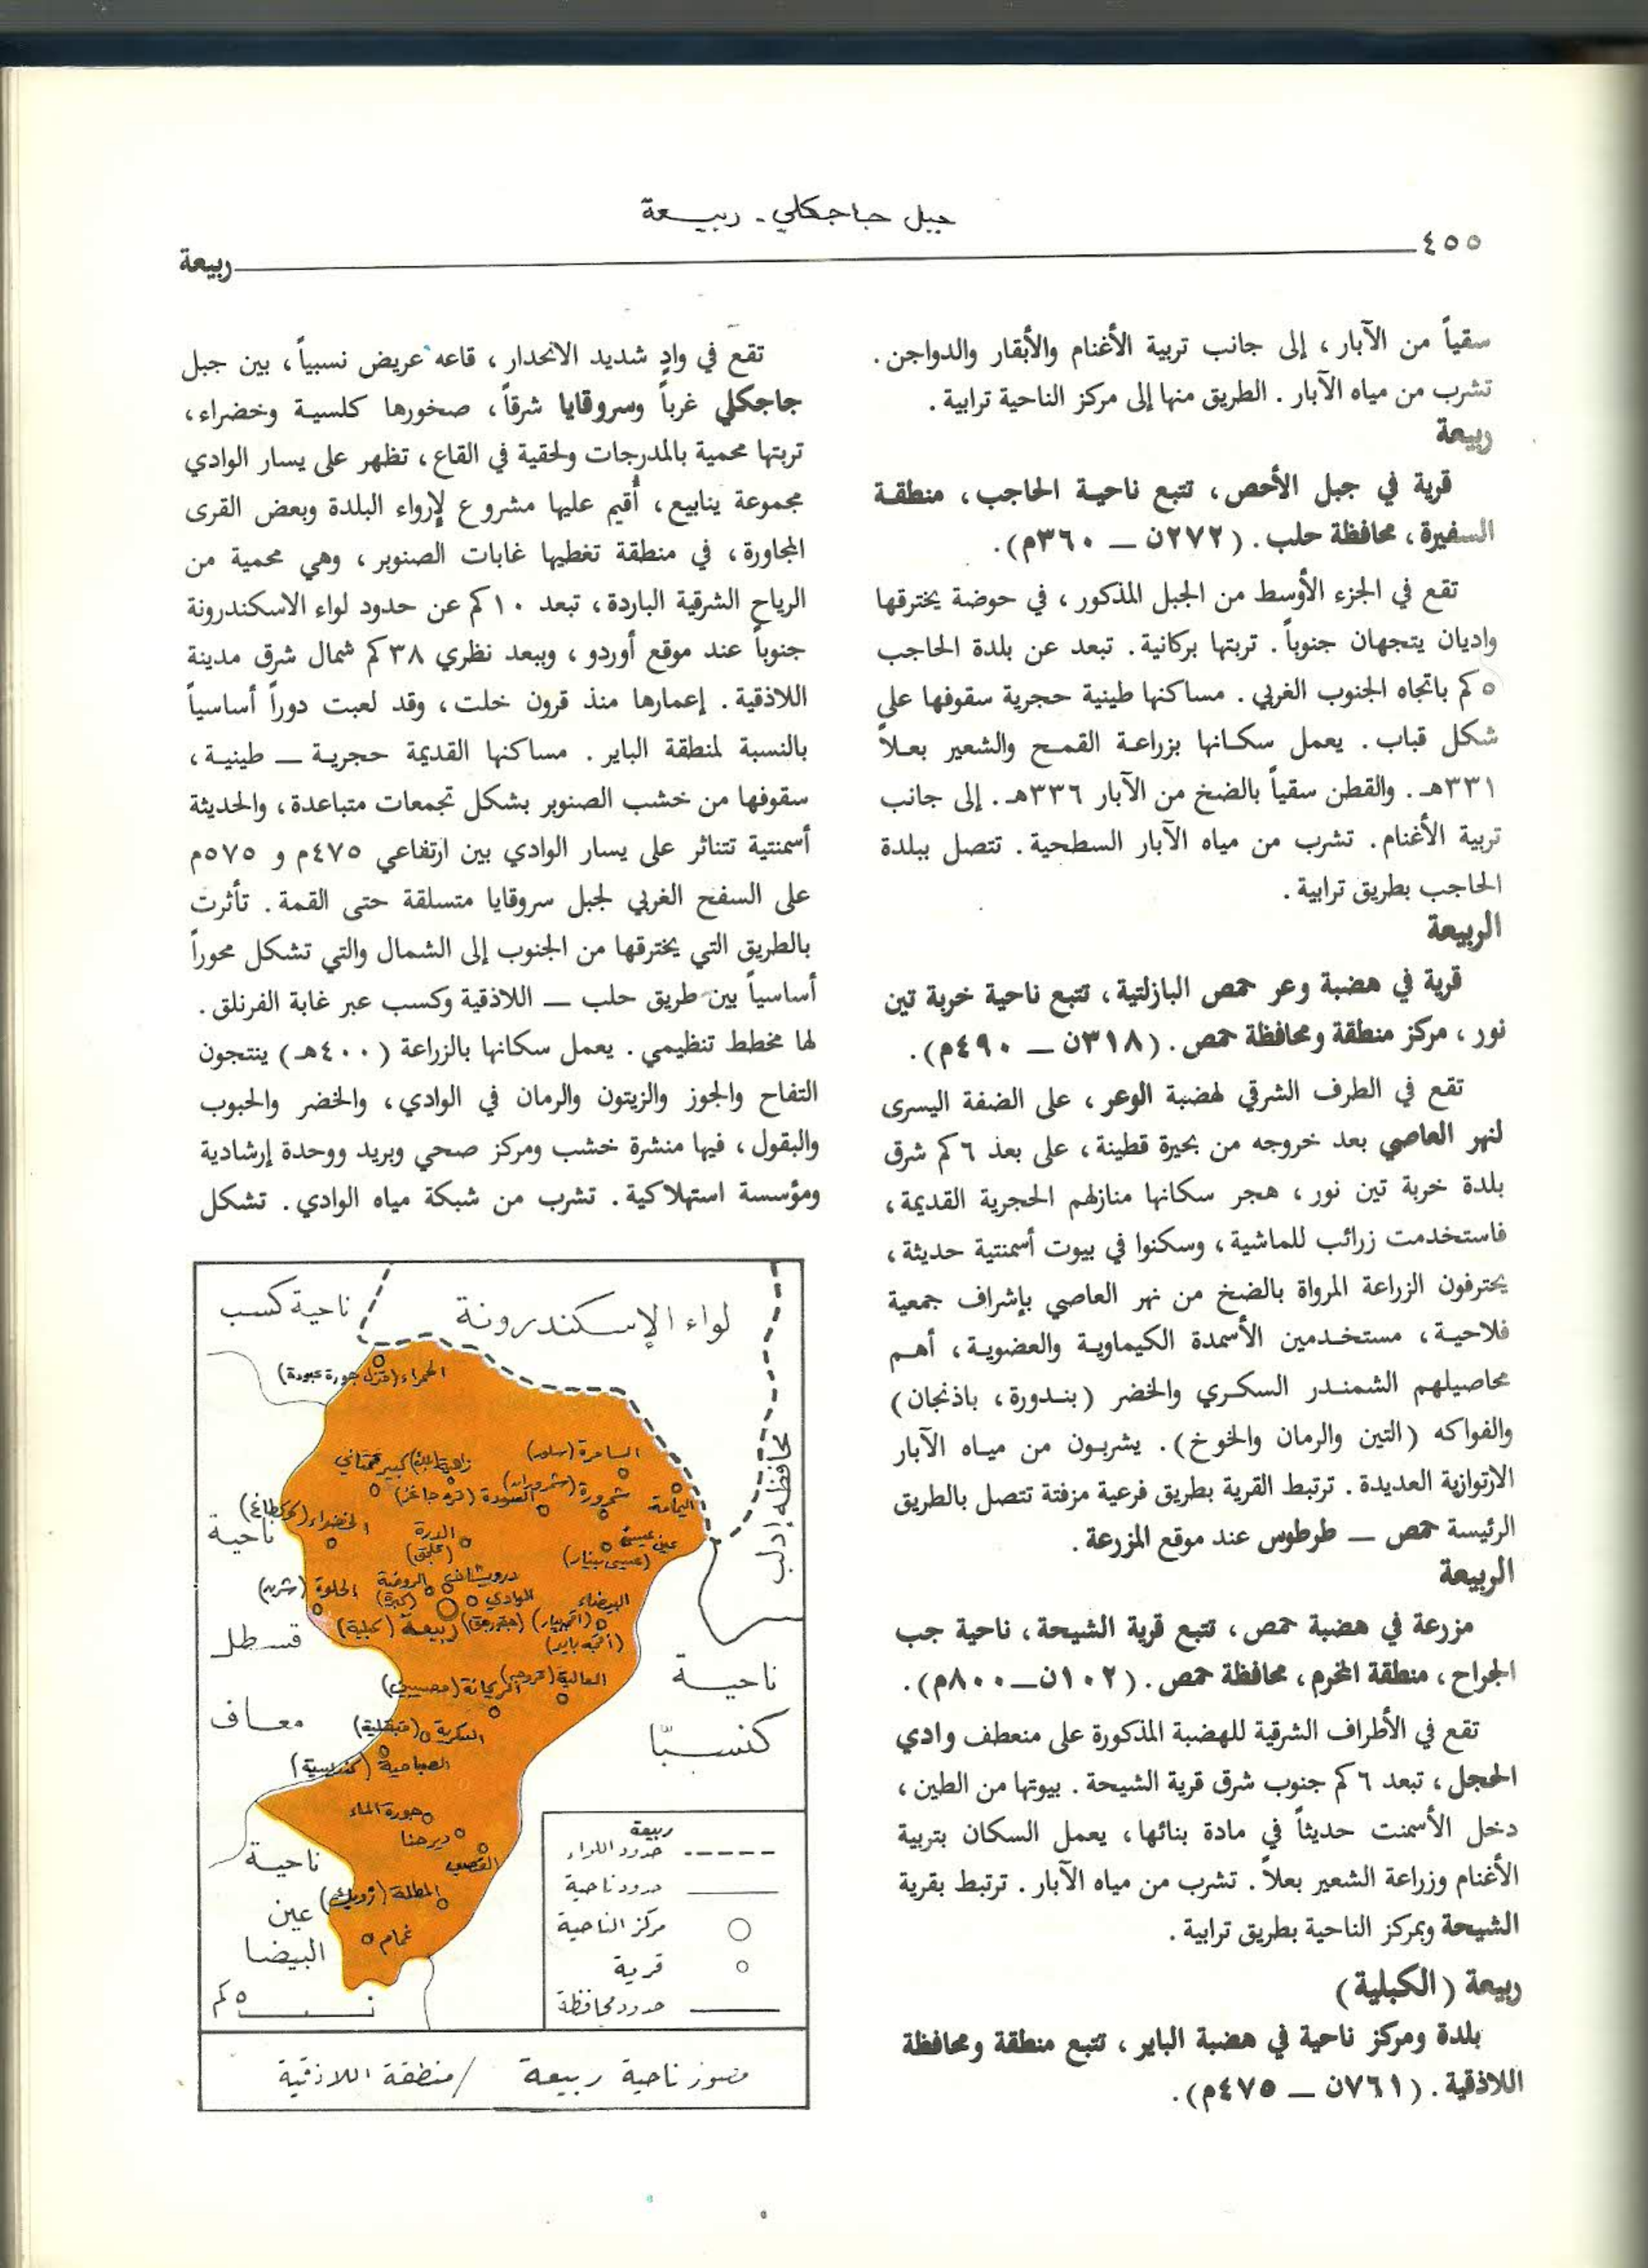 جبل جاجكلي - ربيعة
٤٥٥
ربيعة
سقياً من الآبار، إلى جانب تربية الأغنام والأبقار والدواجن.
تشرب من مياه الآبار. الطريق منها إلى مركز الناحية ترابية.
ربيعة
قرية في جبل الأحص، تتبع ناحية الحاجب، منطقة
السفيرة، محافظة حلب. (٢٧٢ن ــ ٣٦٠م).
تقع في الجزء الأوسط من الجبل المذكور، في حوضة يخترقها
واديان يتجهان جنوباً. تربتها بركانية. تبعد عن بلدة الحاجب
٥ كم باتجاه الجنوب الغربي. مساكنها طينية حجرية سقوفها على
شكل قباب. يعمل سكانها بزراعة القمح والشعير بعلاً
٣٣١هـ. والقطن سقياً بالضخ من الآبار ٣٣٦هـ. إلى جانب
تربية الأغنام. تشرب من مياه الآبار السطحية. تتصل ببلدة
الحاجب بطريق ترابية.
الربيعة
قرية في هضبة وعر حمص البازلتية، تتبع ناحية خربة تين
نور، مركز منطقة ومحافظة حمص. (٣١٨ن ــ ٤٩٠م).
تقع في الطرف الشرقي لهضبة الوعر، على الضفة اليسرى
لنهر العاصي بعد خروجه من بحيرة قطينة، على بعد ٦ كم شرق
بلدة خربة تين نور، هجر سكانها منازلهم الحجرية القديمة،
فاستخدمت زرائب للماشية، وسكنوا في بيوت أسمنتية حديثة،
يحترفون الزراعة المرواة بالضخ من نهر العاصي بإشراف جمعية
فلاحية، مستخدمين الأسمدة الكيماوية والعضوية، أهم
محاصيلهم الشمندر السكري والخضر (بندورة، باذنجان)
والفواكه (التين والرمان والخوخ). يشربون من مياه الآبار
الارتوازية العديدة. ترتبط القرية بطريق فرعية مزفتة تتصل بالطريق
الرئيسة حمص ــ طرطوس عند موقع المزرعة.
الربيعة
مزرعة في هضبة حمص، تتبع قرية الشيحة، ناحية جب
الجراح، منطقة المخرم، محافظة حمص. (١٠٢ن ــ ٨٠٠م).
تقع في الأطراف الشرقية للهضبة المذكورة على منعطف وادي
الحجل، تبعد ٦ كم جنوب شرق قرية الشيحة. بيوتها من الطين،
دخل الأسمنت حديثاً في مادة بنائها، يعمل السكان بتربية
الأغنام وزراعة الشعير بعلاً. تشرب من مياه الآبار. ترتبط بقرية
الشيحة وبمركز الناحية بطريق ترابية.
ربيعة (الكبلية)
بلدة ومركز ناحية في هضبة الباير، تتبع منطقة ومحافظة
اللاذقية. (٧٦١ن ــ ٤٧٥م).
تقع في وادٍ شديد الانحدار، قاعه عريض نسبياً، بين جبل
جاجكلي غرباً وسروقايا شرقاً، صخورها كلسية وخضراء،
تربتها محمية بالمدرجات ولحقية في القاع، تظهر على يسار الوادي
مجموعة ينابيع، أُقيم عليها مشروع لإرواء البلدة وبعض القرى
المجاورة، في منطقة تغطيها غابات الصنوبر، وهي محمية من
الرياح الشرقية الباردة، تبعد ١٠ كم عن حدود لواء الاسكندرونة
جنوباً عند موقع أوردو، وببعد نظري ٣٨ كم شمال شرق مدينة
اللاذقية. إعمارها منذ قرون خلت، وقد لعبت دوراً أساسياً
بالنسبة لمنطقة الباير. مساكنها القديمة حجرية ــ طينية،
سقوفها من خشب الصنوبر بشكل تجمعات متباعدة، والحديثة
أسمنتية تتناثر على يسار الوادي بين ارتفاعي ٤٧٥م و ٥٧٥م
على السفح الغربي لجبل سروقايا متسلقة حتى القمة. تأثرت
بالطريق التي يخترقها من الجنوب إلى الشمال والتي تشكل محوراً
أساسياً بين طريق حلب ــ اللاذقية وكسب عبر غابة الفرنلق.
لها مخطط تنظيمي. يعمل سكانها بالزراعة (٤٠٠هـ) ينتجون
التفاح والجوز والزيتون والرمان في الوادي، والخضر والحبوب
والبقول، فيها منشرة خشب ومركز صحي وبريد ووحدة إرشادية
ومؤسسة استهلاكية. تشرب من شبكة مياه الوادي. تشكل
لواء الإسكندرونة
ناحية كسب
محافظة إدلب
الحمراء (قزل جورة عبودة)
السامرة (سلور)
زاهية
كبير
شمرورة (شمروران)
السودة (قره جاغز)
اليمامة
الخضراء
ناحية
الدرة
عين عيسى
(عيسى بينار)
درويشان
الروضة
(كبرة)
الوادي
البيضاء
الحلوة (شرن)
ربيعة (كبلية)
قسطل
معاف
العالية
الريحانة
ناحية
كنسبّا
البكرية
الصباحية (كندسية)
جورة الماء
ديرحنا
القصب
المطلة (زويك)
غمام
ناحية
عين
البيضا
٥ كم
ربيعة
حدود اللواء
حدود ناحية
مركز الناحية
قرية
حدود محافظة
مصور ناحية ربيعة / منطقة اللاذقية